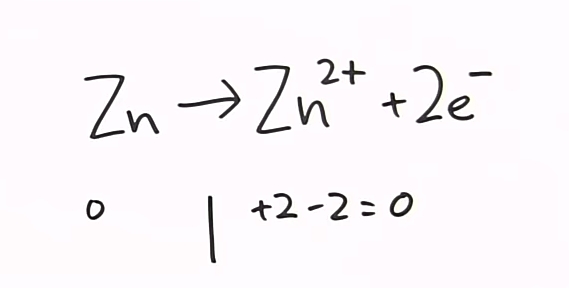 Zn → Zn²⁺ + 2e⁻
0 | +2 - 2 = 0